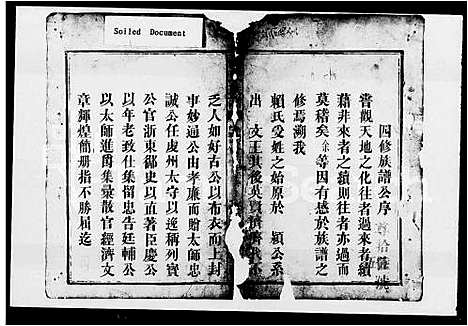 Soiled Document
四修族譜公序
嘗觀天地之化往者過來者續
藉非來者之續則往者亦過而
莫稽矣余等因有感於族譜之
修焉溯我
賴氏受姓之始原於 潁公系
出 文王其後英賢
乏人如好古公以布衣而上封
事妙通公由孝廉而贈太師忠
誠公任虔州太守以遂稱列寶
公官浙東御史以直著臣慶公
以年老政仕集留忠告廷輔公
以太師進爵集彙散官經濟文
章輝煌簡册指不勝屈迄